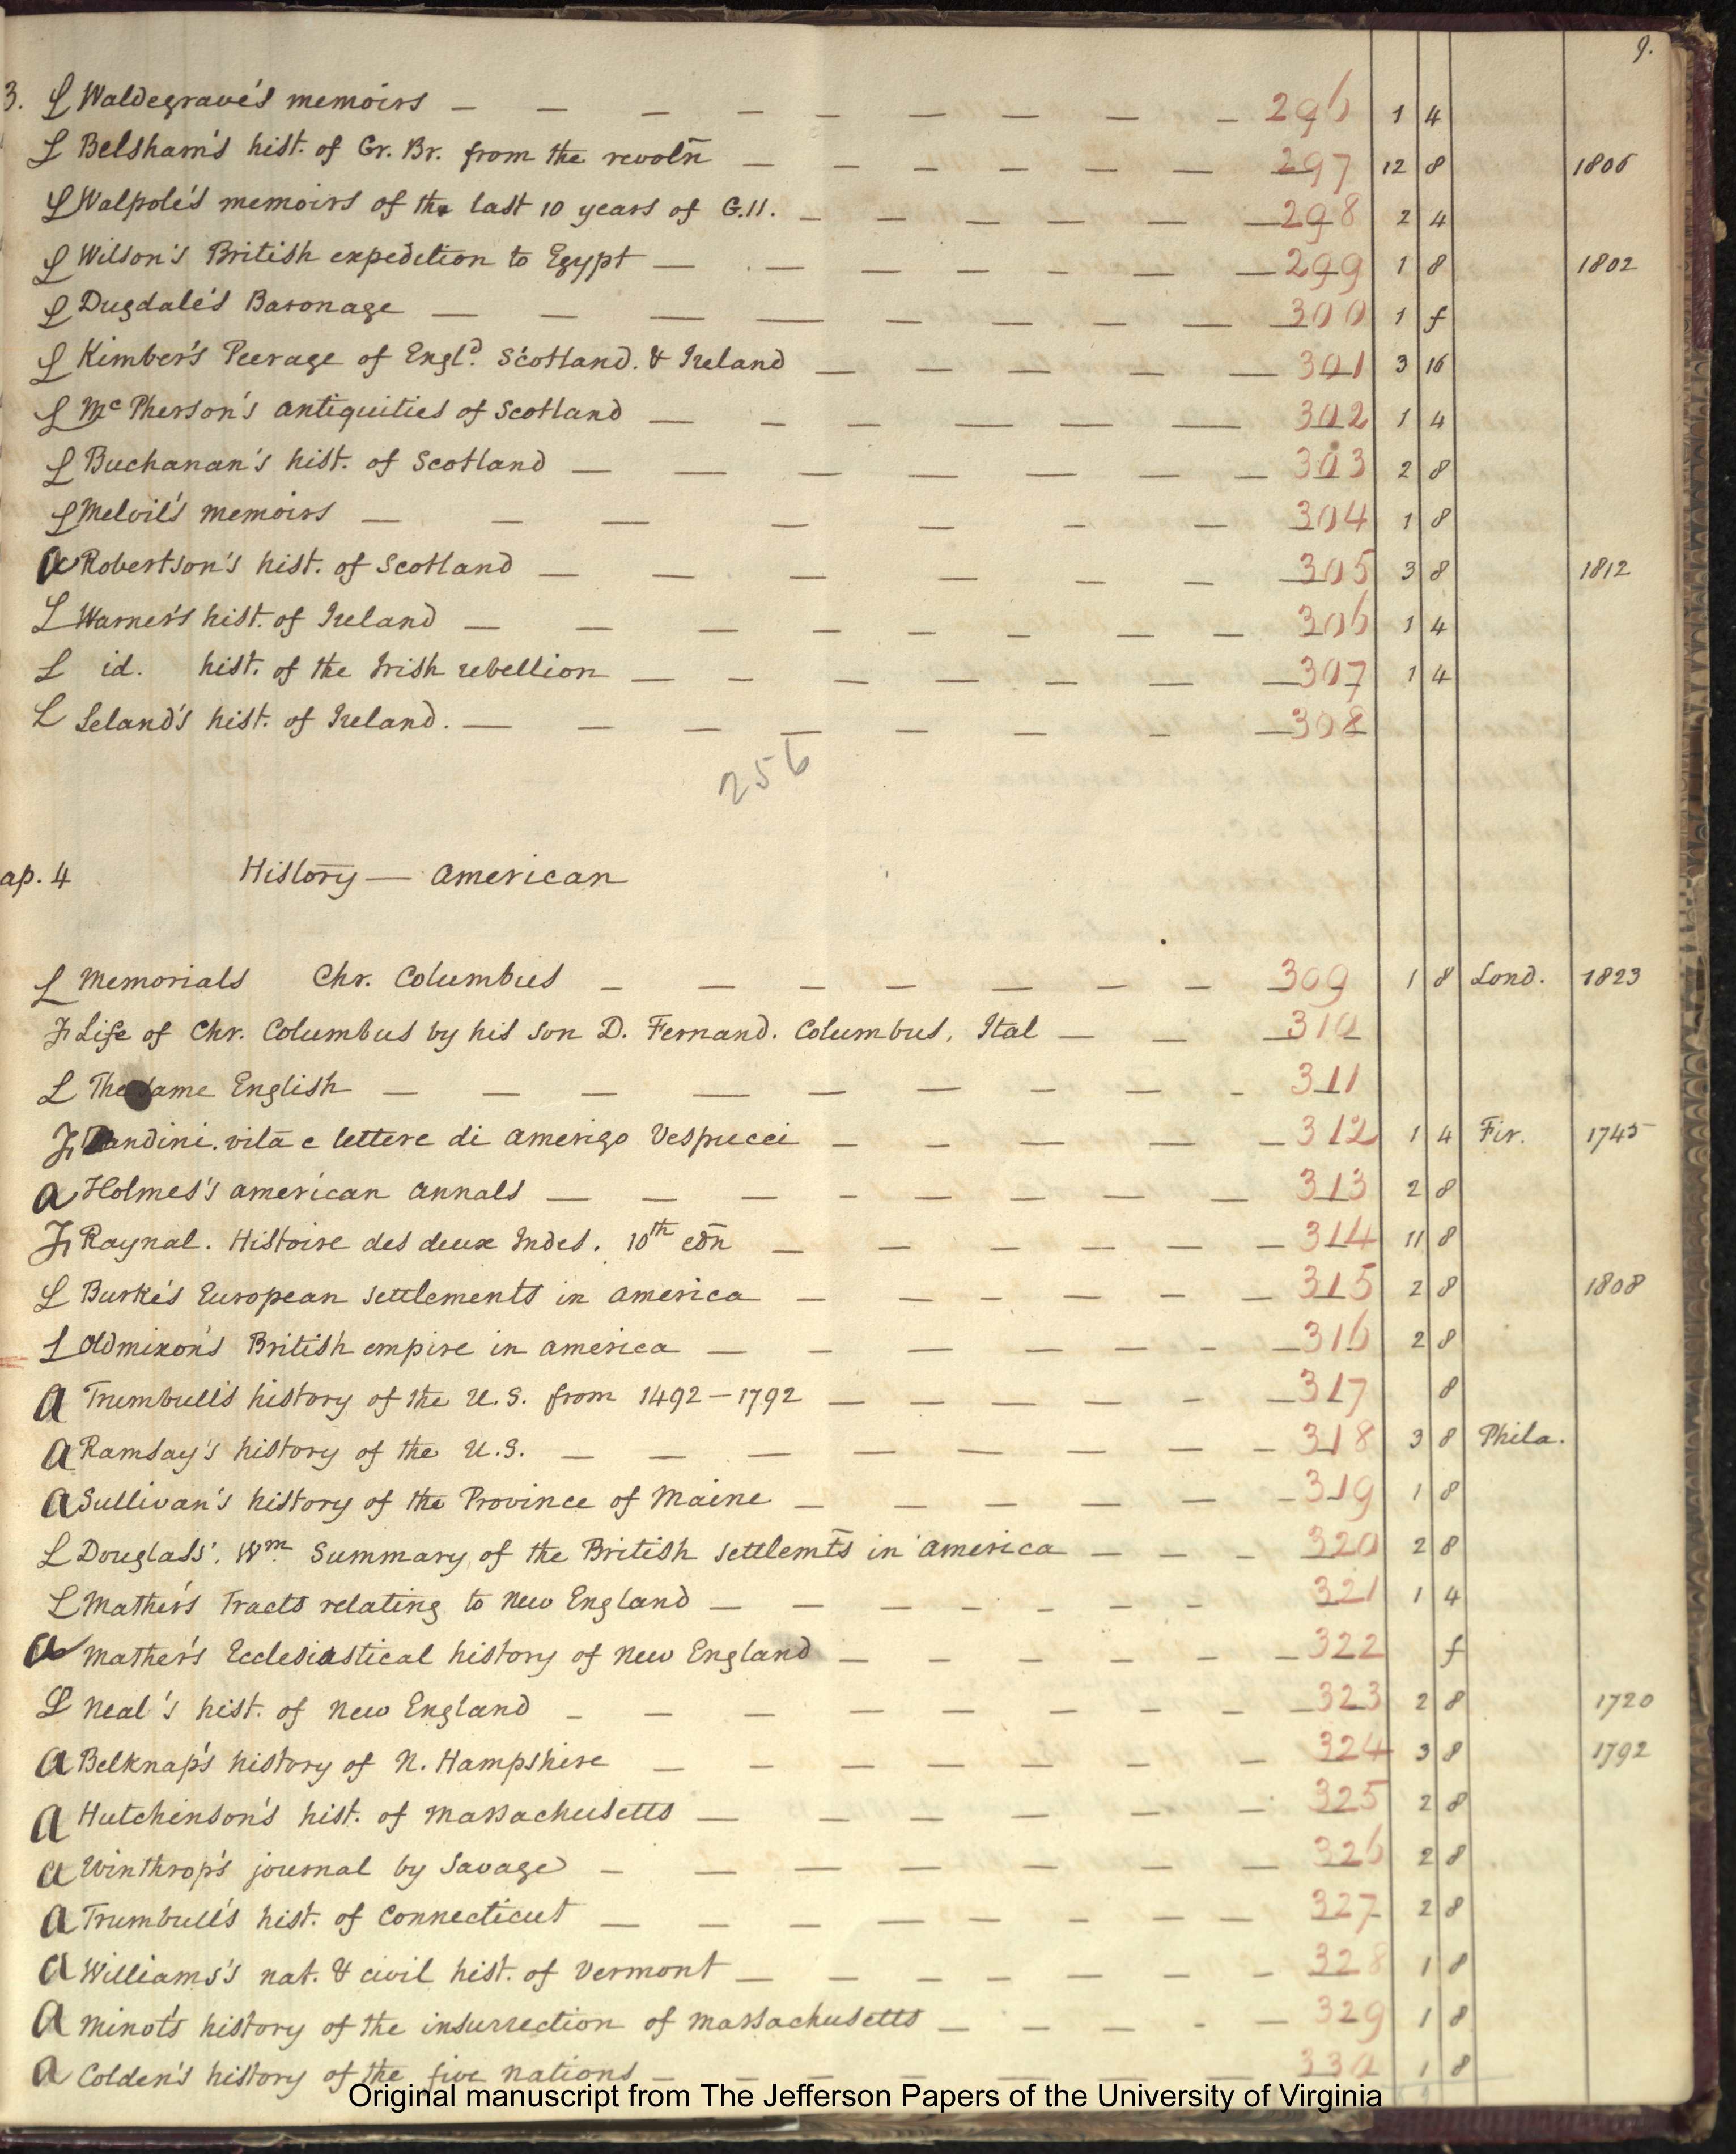 9.
3. L Waldegrave's memoirs — — — — — — — — — 296 1 4
L Belsham's hist. of Gr. Br. from the revoln̄ — — — — — — 297 12 8 1806
L Walpole's memoirs of the last 10 years of G.II. — — — — — 298 2 4
L Wilson's British expedition to Egypt — — — — — — — 299 1 8 1802
L Dugdale's Baronage — — — — — — — — 300 1 f
L Kimber's Peerage of Engld. Scotland. & Ireland — — — — — 301 3 16
L McPherson's antiquities of Scotland — — — — — — 302 1 4
L Buchanan's hist. of Scotland — — — — — — 303 2 8
L Melvil's memoirs — — — — — — — 304 1 8
a Robertson's hist. of Scotland — — — — — — 305 3 8 1812
L Warner's hist. of Ireland — — — — — — — — 306 1 4
L id. hist. of the Irish rebellion — — — — — — — 307 1 4
L Leland's hist. of Ireland. — — — — — — — — 308
256
ap. 4 History — American
L Memorials Chr. Columbus — — — — — — — 309 1 8 Lond. 1823
F Life of Chr. Columbus by his son D. Fernand. Columbus, Ital — — — 310
L The same English — — — — — — — — — 311
F Bandini. vita e lettere di Amerigo Vespucci — — — — — 312 1 4 Fir. 1745
a Holmes's american annals — — — — — — — — 313 2 8
F Raynal. Histoire des deux Indes. 10th edn̄ — — — — — 314 11 8
L Burke's European settlements in america — — — — — — 315 2 8 1808
L Oldmixon's British empire in america — — — — — — — 316 2 8
a Trumbull's history of the U.S. from 1492–1792 — — — — — — 317 8
a Ramsay's history of the U.S. — — — — — — — — 318 3 8 Phila.
a Sullivan's history of the Province of Maine — — — — — — 319 1 8
L Douglass'. Wm. Summary of the British settlemt̄s in america — — — 320 2 8
L Mather's Tracts relating to New England — — — — — — — 321 1 4
a Mather's Ecclesiastical history of New England — — — — — — 322 f
L Neal's hist. of New England — — — — — — — — 323 2 8 1720
a Belknap's history of N. Hampshire — — — — — — — 324 3 8 1792
a Hutchinson's hist. of Massachusetts — — — — — — 325 2 8
a Winthrop's journal by Savage — — — — — — — — 326 2 8
a Trumbull's hist. of Connecticut — — — — — — — — 327 2 8
a Williams's nat. & civil hist. of Vermont — — — — — — — 328 1 8
a Minot's history of the insurrection of Massachusetts — — — — — 329 1 8
a Colden's history of the five nations — — 330 1 8
Original manuscript from The Jefferson Papers of the University of Virginia